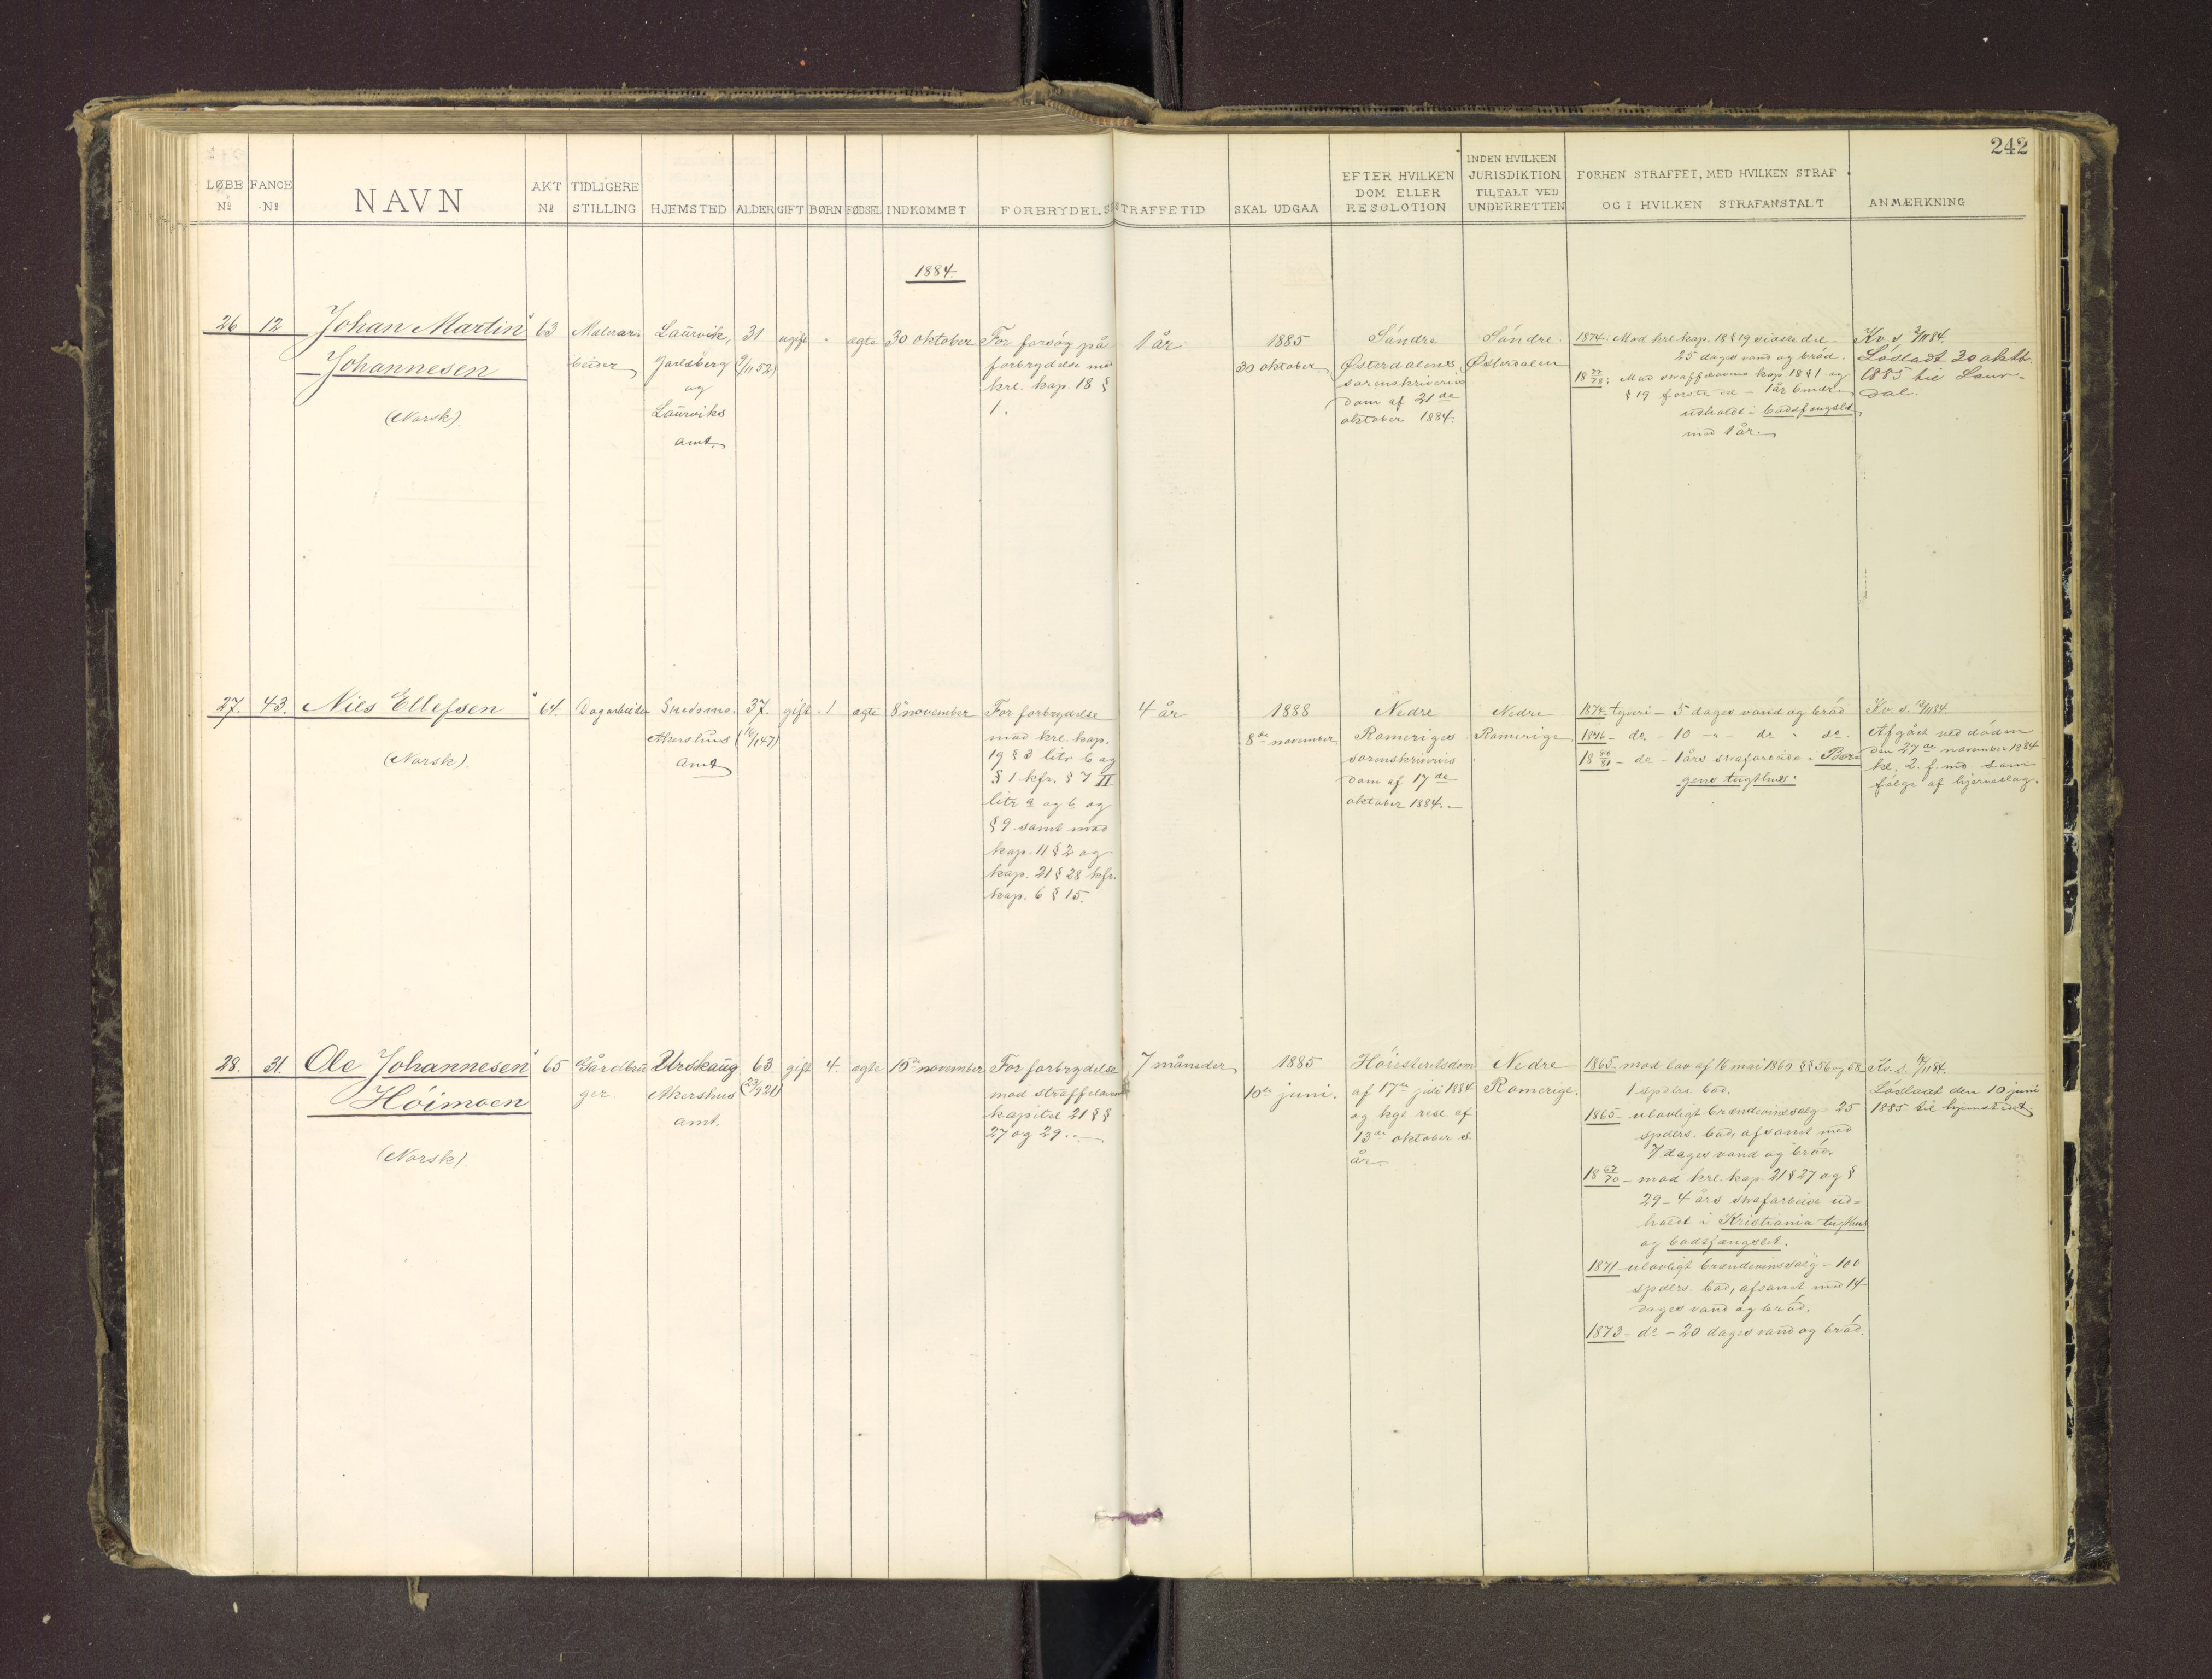 242
LØBE Nº
FANGE Nº
NAVN
AKT Nº
TIDLIGERE STILLING
HJEMSTED
ALDER
GIFT
BØRN
FØDSEL
INDKOMMET
FORBRYDELSE
STRAFFETID
SKAL UDGAA
EFTER HVILKEN
DOM ELLER
RESOLOTION
INDEN HVILKEN
JURISDIKTION
TILTALT VED
UNDERRETTEN
FORHEN STRAFFET, MED HVILKEN STRAF
OG I HVILKEN STRAFANSTALT
ANMÆRKNING
1884.
26
12
Johan Martin
Johannesen
(Norsk).
63
Malerar-
beider
Laurvik,
Jarlsberg
og
Laurviks
amt.
31
(9/11 52)
ugift
"
ægte
30 oktober
For forsøg på
forbrydelse mod
krl. kap. 18 §
1.
1 år
1885
30 oktober.
Søndre
Østerdalens
sorenskriveries
dom af 21de
oktober 1884.
Søndre
Østerdalen
1874: Mod krl. kap. 18 § 19 sidste del –
25 dages vand og brød.
18 77/78: Mod straffelovens kap. 18 § 1 og
§ 19 første del – 1 år 6 mdr.
udholdt i bodsfengslet
med 1 år.
Kv. s. 3/11 84.
Løsladt 30 oktbr.
1885 til Laur-
dal.
27.
43.
Niels Ellefsen
(Norsk).
64.
Dagarbeider
Skedsmo
Akershus
amt
37.
(16/1 47)
gift
1
ægte
8de november
For forbrydelse
mod krl. kap.
19 § 3 litr. b og
§ 1 kfr. § 7 II
litr. a og b og
§ 9 samt mod
kap. 11 § 2 og
kap. 21 § 28 kfr.
kap. 6 § 15.
4 år
1888
8de november
Nedre
Romeriges
sorenskriveris
dom af 17de
oktober 1884.
Nedre
Romerige
1874 tyveri – 5 dages vand og brød
1876 – do – 10 – " – do " do.
18 80/81 – do – 1 års strafarbeide i Ber-
gens tugthus.
Kv. s. 12/11 84.
Afgået ved døden
den 27de november 1884
kl. 2. f. md. som
følge af hjerneslag.
28.
31
Ole Johannesen
Høimoen
(Norsk).
65
Gårdbru-
ger.
Urskaug
Akershus
amt.
63
(23/9 21)
gift
4.
ægte
10de november
For forbrydelse
mod straffelovens
kapitel 21 § §
27 og 29.
7 måneder
1885
10de juni.
Høiesteretsdom
af 17de juli 1884
og kgl. resl. af
13de oktober s.
år.
Nedre
Romerige.
1865 – mod lov af 16 mai 1860 §§ 56 og 58.
1 spdlrs. bod.
1865 – ulovligt brændevinssalg – 25
spdlrs. bod, afsonet med
7 dages vand og brød.
18 67/70 – mod krl. kap. 21 § 27 og §
29 – 4 års strafarbeide ud-
holdt i Kristiania tugthus
og bodsfængslet.
1871 – ulovligt brændevinssalg – 100
spdlrs. bod, afsonet med 14
dages vand og brød.
1873 – do – 20 dages vand og brød.
Kv. s. 12/11 84.
Løsladt den 10 juni
1885 til hjemstedet